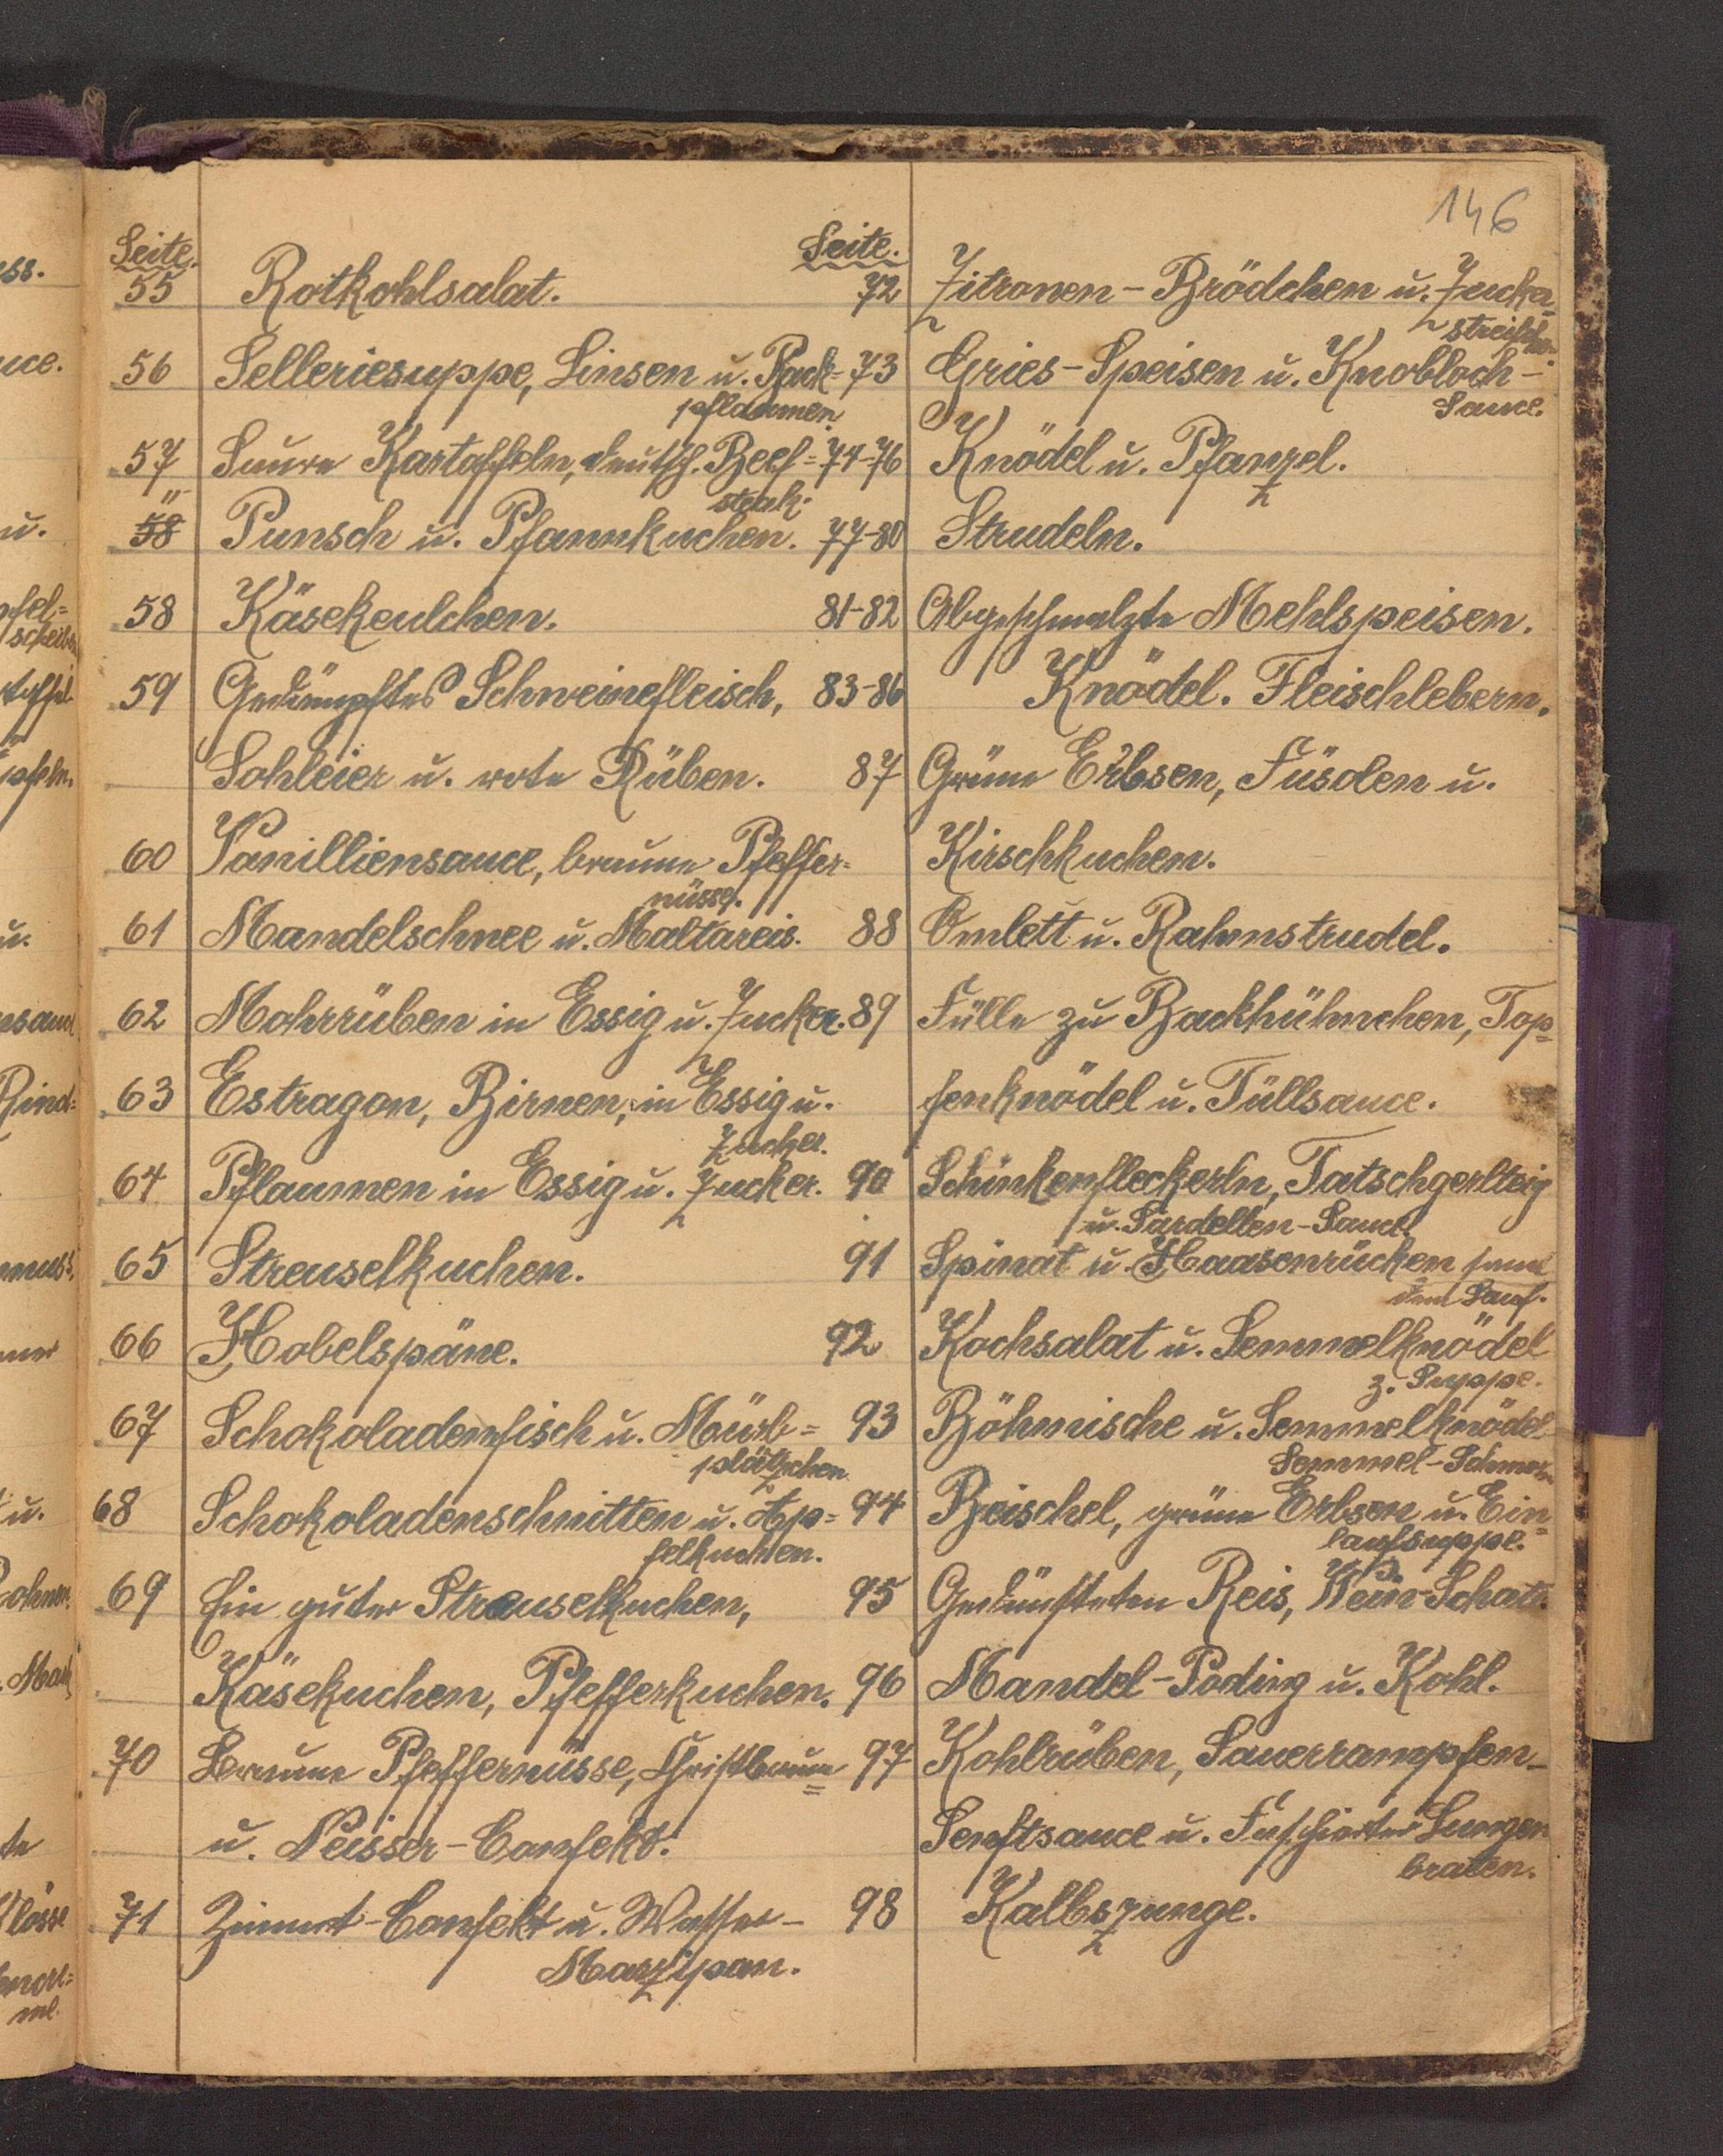 146
Seite.
55 Rotkohlsalat.
56 Selleriesuppe, Linsen u. Pack=
pflaumen.
57 Saure Kartoffeln, deutsch. Beef=
steak.
" 58 Punsch u. Pfannkuchen.
58 Käsekeulchen.
59 Gedämpftes Schweinefleisch,
Sohleier u. rote Rüben.
60 Vanilliensauce, braune Pfeffer=
nüsse.
61 Mandelschnee u. Maltareis.
62 Mohrrüben in Essig u. Zucker.
63 Estragon, Birnen, in Essig u.
Zucker.
64 Pflaumen in Essig u. Zucker.
65 Streuselkuchen.
66 Hobelspäne.
67 Schokoladenfisch u. Mürb=
plätzchen
68 Schokoladenschnitten u. Ap=
felkuchen.
69 Ein guter Streuselkuchen,
Käsekuchen, Pfefferkuchen.
70 Braune Pfeffernüsse, Christbaum=
u. Neisser-Confekt.
71 Zimmt-Confekt u. Wasser-
Marzipan.
Seite.
72 Zitronen-Brödchen u. Zucker=
73 Gries-Speisen u. Knobloch-
Sauce.
74-76 Knödel u. Pfanzel.
77-80 Strudeln.
81-82 Abgeschmalzte Mehlspeisen.
83-86 Knödel. Fleischlebern.
87 Grüne Erbsen, Füsolen u.
Kirschkuchen.
88 Omlett u. Rahmstrudel.
89 Fülle zu Backhühnchen, Top=
fenknödel u. Tüllsauce.
90 Schinkenfleckerln, Tatschgerlteig
u. Sardellen-Sauce.
91 Spinat u. Haasenrücken
92 Kochsalat u. Semmelknödel
z. Suppe.
93 Böhmische u. Semmelknödel
94 Beischel, grüne Erbsen u. Ein=
laufsuppe.
95 Gedünsteten Reis, Wein-Schato.
96 Mandel-Poding u. Kohl.
97 Kohlrüben, Sauerrampfen-
Senftsauce u. Faschierter Lungen
braten.
98 Kalbszunge.